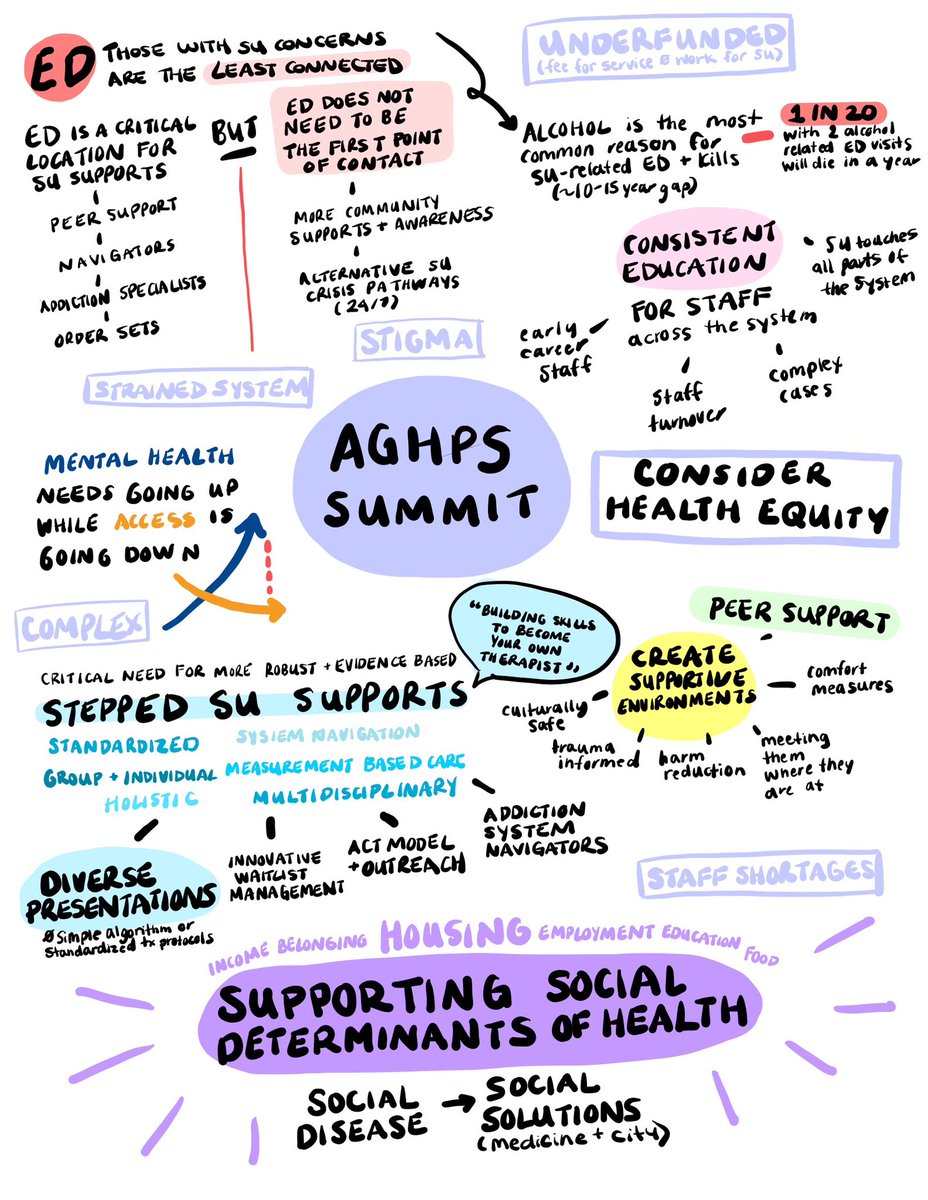 ED THOSE WITH SU CONCERNS
ARE THE LEAST CONNECTED
UNDERFUNDED
(fee for service Ø work for SU)
ED IS A CRITICAL
LOCATION FOR
SU SUPPORTS
PEER SUPPORT
NAVIGATORS
ADDICTION SPECIALISTS
ORDER SETS
BUT
ED DOES NOT
NEED TO BE
THE FIRST POINT
OF CONTACT
MORE COMMUNITY
SUPPORTS + AWARENESS
ALTERNATIVE SU
CRISIS PATHWAYS
(24/7)
ALCOHOL is the most
common reason for
SU-related ED + kills
(~10-15 year gap)
1 IN 20
with 2 alcohol
related ED visits
will die in a year
CONSISTENT
EDUCATION
FOR STAFF
across the system
SU touches
all parts of
the system
early
career
staff
staff
turnover
complex
cases
STIGMA
STRAINED SYSTEM
AGHPS
SUMMIT
MENTAL HEALTH
NEEDS GOING UP
WHILE ACCESS IS
GOING DOWN
CONSIDER
HEALTH EQUITY
COMPLEX
CRITICAL NEED FOR MORE ROBUST + EVIDENCE BASED
STEPPED SU SUPPORTS
STANDARDIZED
SYSTEM NAVIGATION
GROUP + INDIVIDUAL
MEASUREMENT BASED CARE
HOLISTIC
MULTIDISCIPLINARY
"BUILDING SKILLS
TO BECOME
YOUR OWN
THERAPIST"
PEER SUPPORT
CREATE
SUPPORTIVE
ENVIRONMENTS
comfort
measures
culturally
safe
trauma
informed
harm
reduction
meeting
them
where they
are at
DIVERSE
PRESENTATIONS
Ø simple algorithm or
standardized tx protocols
INNOVATIVE
WAITLIST
MANAGEMENT
ACT MODEL
+ OUTREACH
ADDICTION
SYSTEM
NAVIGATORS
STAFF SHORTAGES
INCOME BELONGING HOUSING EMPLOYMENT EDUCATION FOOD
SUPPORTING SOCIAL
DETERMINANTS OF HEALTH
SOCIAL
DISEASE
SOCIAL
SOLUTIONS
(medicine + city)